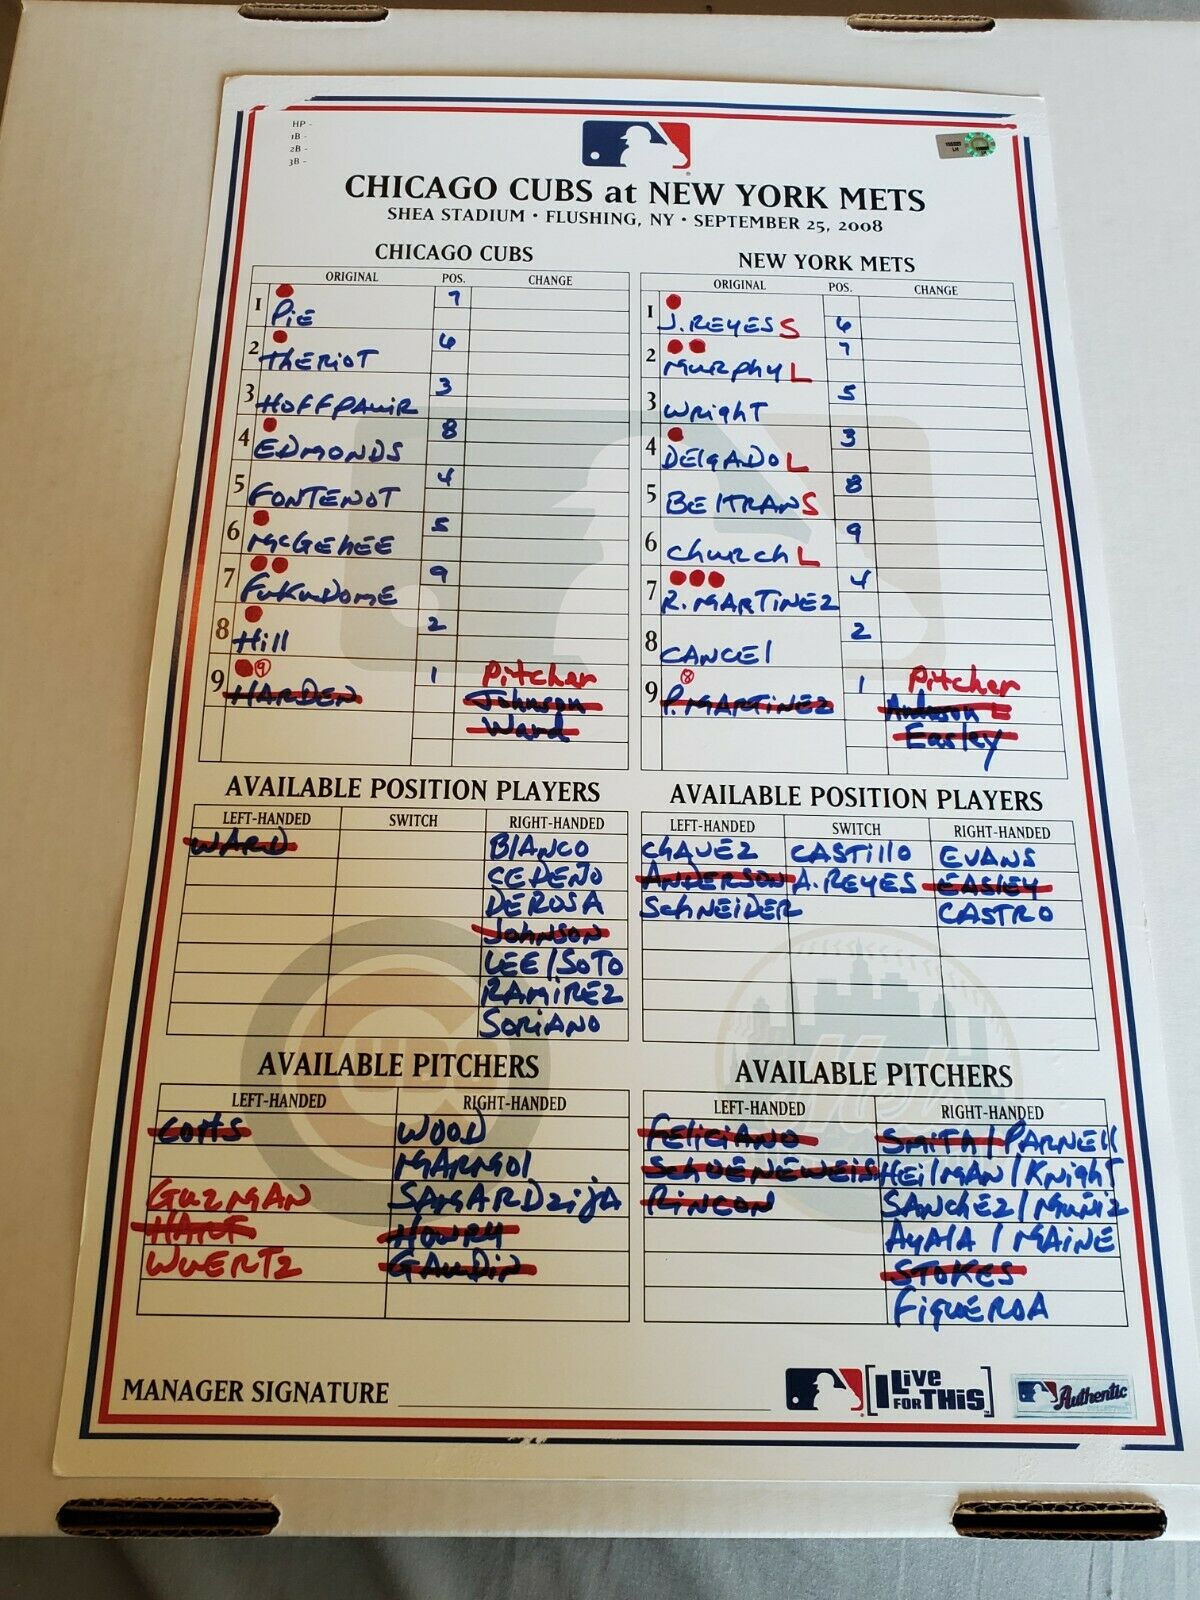 HP -
1B -
2B -
3B -
CHICAGO CUBS at NEW YORK METS
SHEA STADIUM • FLUSHING, NY • SEPTEMBER 25, 2008
CHICAGO CUBS
ORIGINAL POS. CHANGE
1 PIE 7
2 THERIOT 6
3 HOFFPAUIR 3
4 EDMONDS 8
5 FONTENOT 4
6 McGEHEE 5
7 FUKUDOME 9
8 Hill 2
9 HARDEN 9 1 Pitcher
Johnson
Ward
NEW YORK METS
ORIGINAL POS. CHANGE
1 J. REYES S 6
2 MURPHY L 7
3 WRIGHT 5
4 DELGADO L 3
5 BELTRAN S 8
6 CHURCH L 9
7 R. MARTINEZ 4
8 CANCEL 2
9 P. MARTINEZ 1 Pitcher
Anderson L
Easley
AVAILABLE POSITION PLAYERS
LEFT-HANDED SWITCH RIGHT-HANDED
WARD BLANCO
CEDEÑO
DEROSA
JOHNSON
LEE / SOTO
RAMIREZ
SORIANO
AVAILABLE POSITION PLAYERS
LEFT-HANDED SWITCH RIGHT-HANDED
CHAVEZ CASTILLO EVANS
ANDERSON A. REYES EASLEY
SCHNEIDER CASTRO
AVAILABLE PITCHERS
LEFT-HANDED RIGHT-HANDED
COTTS WOOD
MARMOL
GUZMAN SAMARDZIJA
HART HOWRY
WUERTZ GAUDIN
AVAILABLE PITCHERS
LEFT-HANDED RIGHT-HANDED
FELICIANO SMITH / PARNELL
SCHOENEWEIS HEILMAN / KNIGHT
RINCON SANCHEZ / MUÑIZ
AYALA / MAINE
STOKES
FIGUEROA
MANAGER SIGNATURE
I LIVE FOR THIS
Authentic